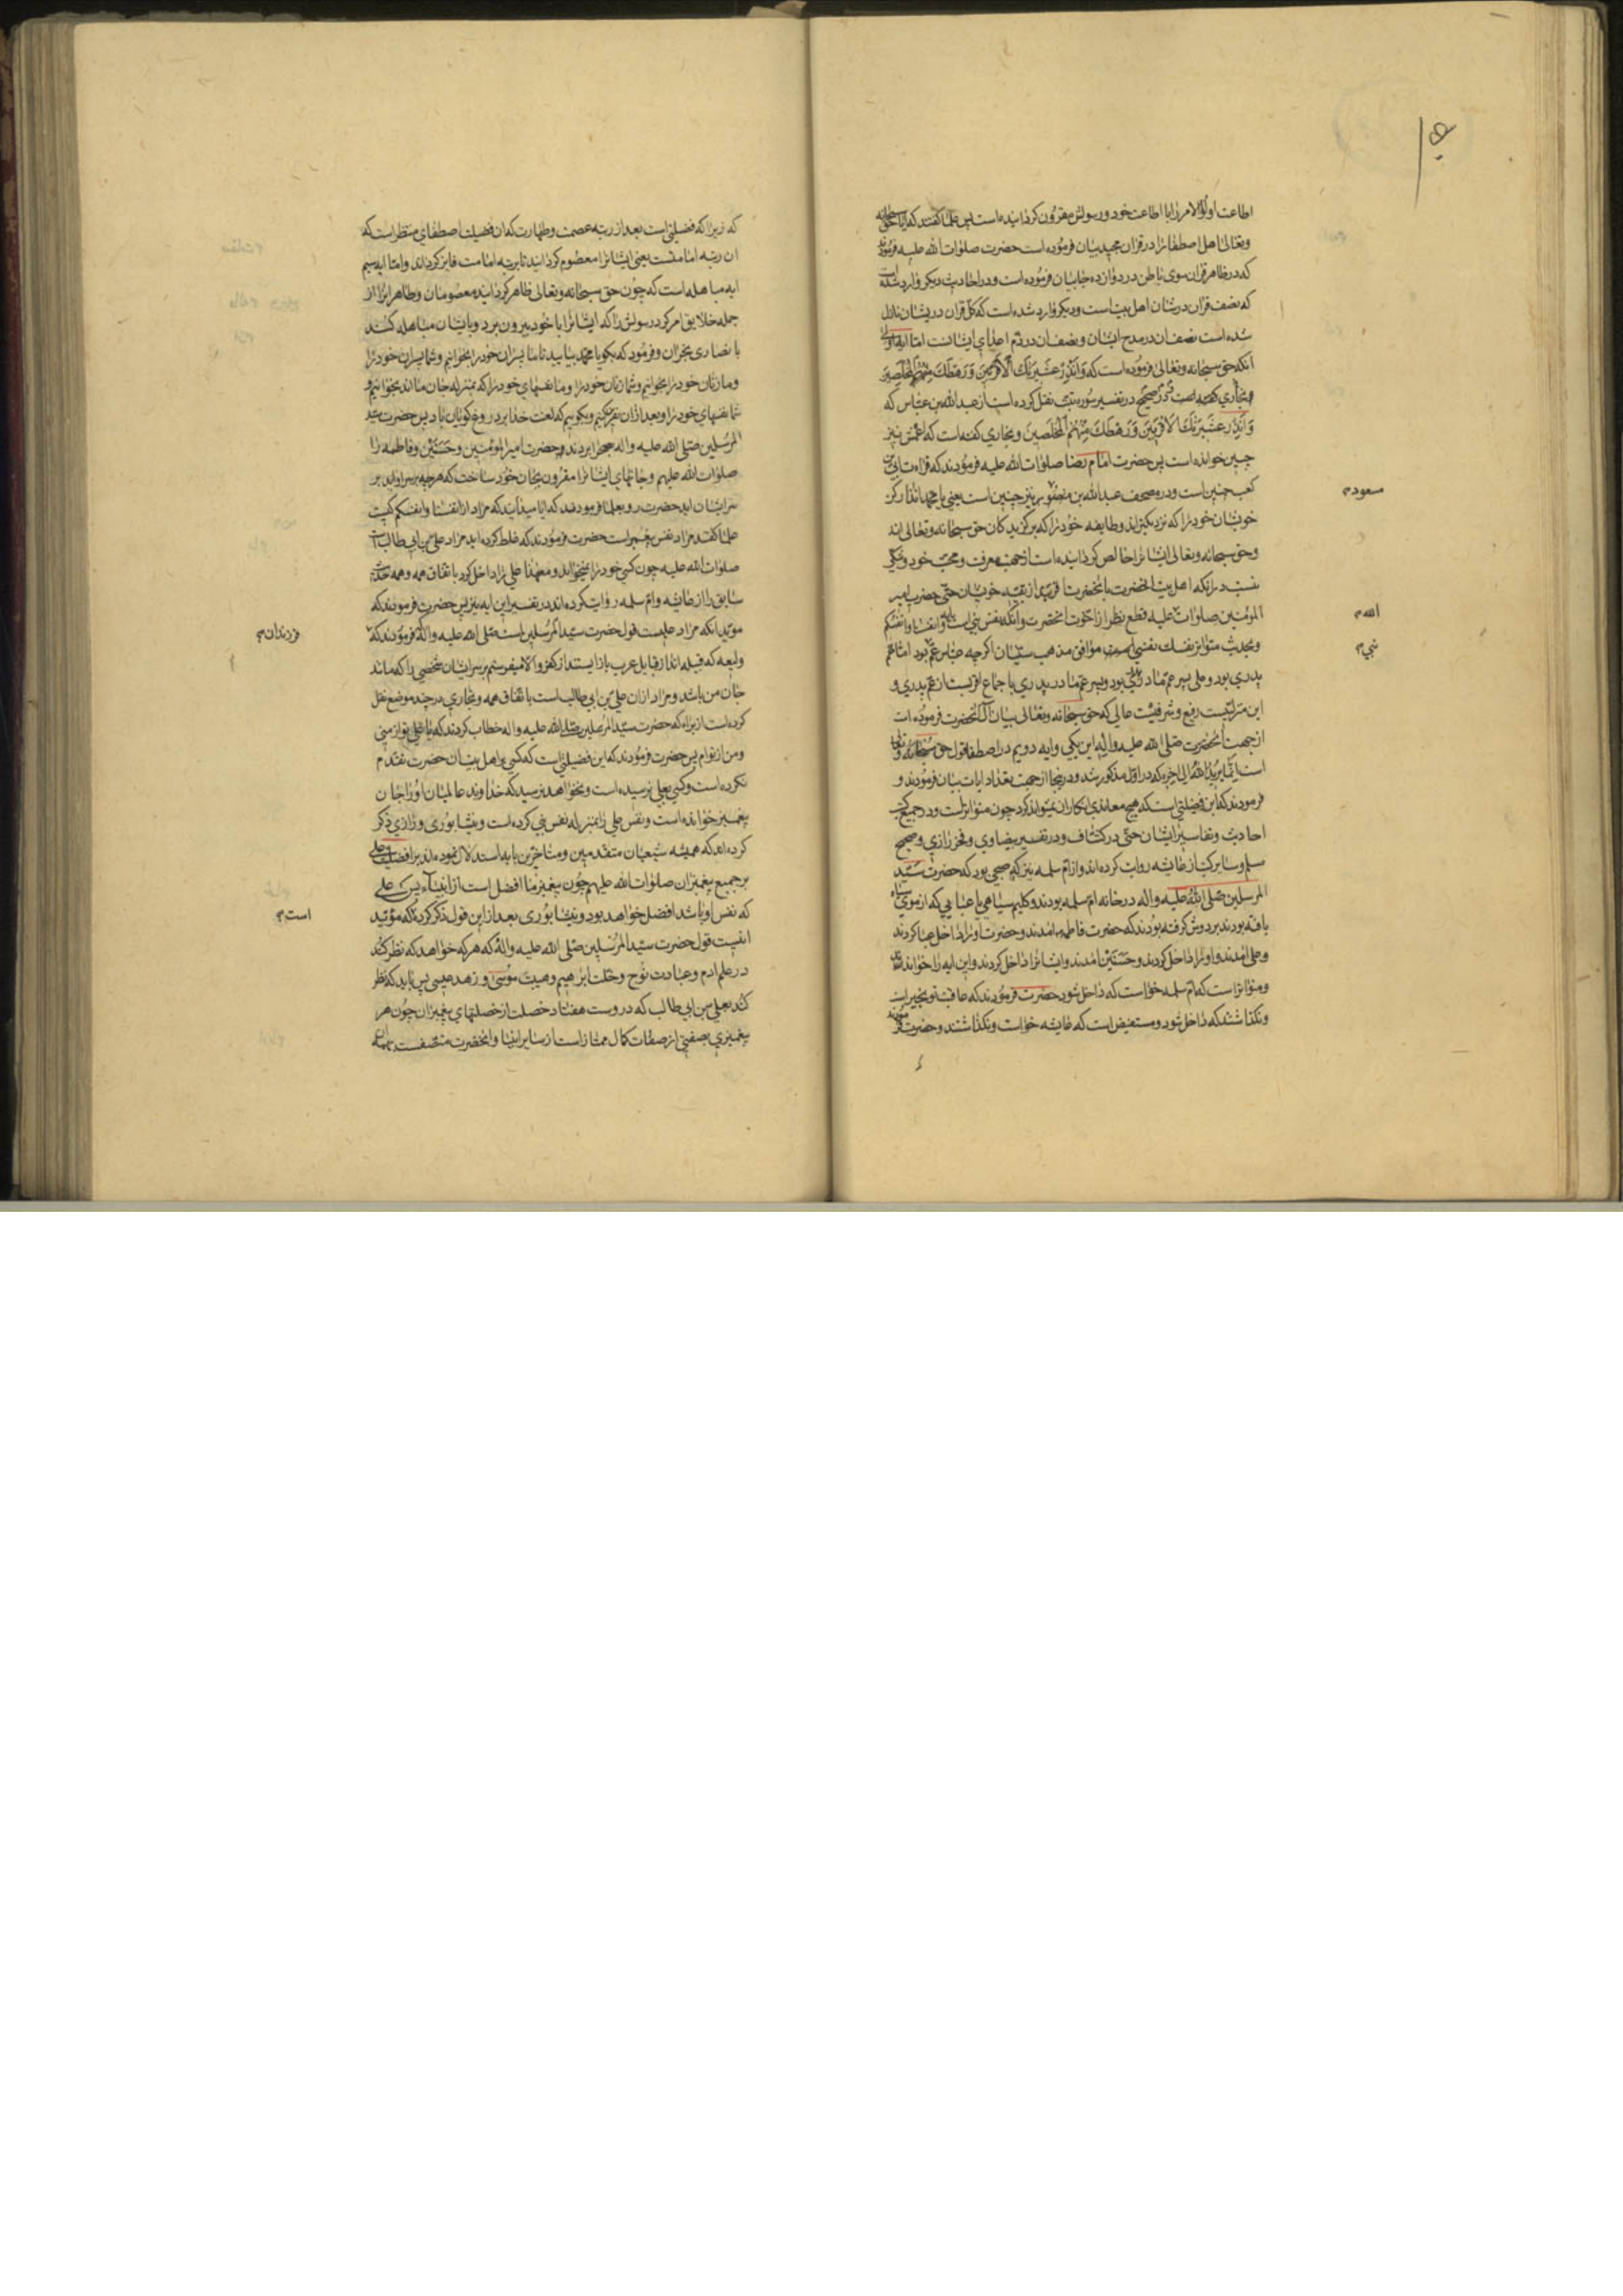 اطاعت اولو الامر را با اطاعت خود و رسولش مقرون گردانیده است پس علما گفتند که ایا حق سبحانه
وتعالی اهل اصطفا را در قران مجید بیان فرموده است حضرت صلوات الله علیه فرمودند
که در ظاهر قران سوی باطن در دوازده جا بیان فرموده است و در احادیث دیگر وارد شده است
که نصف قران در شان اهل بیت است و دیگر وارد شده است که کل قران در یشان نازل
شده است نصف ان در مدح ایشان و نصف ان در ذم اعدای ایشانست اما ایه اولی
انکه حق سبحانه وتعالی فرموده است که وَاَنْذِرْ عَشیرَتَكَ الْاَقْرَبینَ وَرَهْطَكَ مِنْهُمُ الْمُخْلَصینَ
و بخاری که در صحیح در تفسیر سوره تبت نقل کرده است از عبد الله بن عباس که
وَاَنْذِرْ عَشیرَتَكَ الْاَقْرَبینَ وَرَهْطَكَ مِنْهُمُ الْمُخْلَصینَ و بخاری گفته است که اعمش نیز
چنین خوانده است پس حضرت امام رضا صلوات الله علیه فرمودند که قراءت ابی بن
کعب چنین است و در مصحف عبدالله بن مسعود نیز چنین است یعنی یا محمد انذار کن
خویشان خود را که نزدیکترند و طایفه خود را که برگزیدکان حق سبحانه وتعالی اند
وحق سبحانه وتعالی ایشانرا خالص گردانیده است از جهت معرفت و محبت خود و نیکی
نسبت در انکه اهل بیت انحضرت با انحضرت اقربند از بقیه خویشان حتی حضرت امیر
المؤمنین صلوات الله علیه قطع نظر از اخوت انحضرت و انکه نفس نبی است بایه وانفسنا وانفسکم
وبحدیث متواتر نفسك نفسی موافق مذهب سنیان اگرچه عباس عم نبی بود اما عم
پدری بود و علی پسر عم مادر پدری بود و پسر عم مادر پدری با جماع اقربست از عم پدری و
این منزلتیست رفیع و شرفیست عالی که حق سبحانه وتعالی بیان ال انحضرت فرموده است
از جهت انحضرت صلی الله علیه واله این یکی و ایه دویم در اصطفا قول حق سبحانه وتعالی
است انما یرید الله الی اخره که در اول مذکور شد و در اینجا از جهت تعداد ایات بیان فرمودند و
فرمودند که این فضیلتی است که هیچ معاندی انکار ان نمیتواند کرد چون متواتر است و در جمیع کتب
احادیث و تفاسیر ایشان حتی در کشاف و در تفسیر بیضاوی و فخر رازی و صحیح
مسلم و سایر کتب از عایشه روایت کرده اند و از ام سلمه نیز که صبحی بود که حضرت سید
المرسلین صلی الله علیه واله در خانه ام سلمه بودند و کلیم سیاهی یا عبایی که از موی سیاه
بافته بودند بر دوش گرفته بودند که حضرت فاطمه امدند و حضرت او را داخل عبا کردند
و علی امدند و او را داخل کردند و حسنین امدند و ایشانرا داخل کردند و این ایه را خواندند
و متواتر است که ام سلمه خواست که داخل شود حضرت فرمودند که عاقبت تو بخیر است
و نگذاشتند که داخل شود و مستفیض است که عایشه خواست و نگذاشتند و حضرت فرمودند
مسعود
الله
نبی
که زیرا که فضیلتی است بعد از رتبه عصمت و طهارت که ان فضیلت اصطفای منتظر است که
ان رتبه امامتست یعنی ایشانرا معصوم گردانید تا برتبه امامت فایز گرداند و اما ایه سیم
ایه مباهله است که چون حق سبحانه وتعالی ظاهر گردانید معصومان و طاهرانرا از
جمله خلایق امر کرد رسولش را که ایشانرا با خود بیرون برد و با ایشان مباهله کنند
با نصاری نجران و فرمود که بگو یا محمد بیایید تا ما پسران خود را بخوانیم و شما پسران خود را
و ما زنان خود را بخوانیم و شما زنان خود را و ما نفسهای خود را که بمنزله جان ما اند بخوانیم و
شما نفسهای خود را و بعد از ان نفرین کنیم و بگوییم که لعنت خدا بر دروغ گویان باد پس حضرت سید
المرسلین صلی الله علیه واله بصحرا بردند حضرت امیر المؤمنین و حسنین و فاطمه را
صلوات الله علیهم و جانهای ایشانرا مقرون بجان خود ساخت که هر چه بر سر او اید بر
سر ایشان اید حضرت رو بعلما فرمودند که ایا میدانید که مراد از انفسنا و انفسکم کیست
علما گفتند مراد نفس پیغمبر است حضرت فرمودند که غلط کرده اید مراد علی بن ابی طالب است
صلوات الله علیه چون کسی خود را نمیخواند و معهذا علی را داخل کرد باتفاق همه و همه حدیث
سابق را از عایشه و ام سلمه روایت کرده اند در تفسیر این ایه نیز پس حضرت فرمودند که
موید انکه مراد علیست قول حضرت سید المرسلین است صلی الله علیه واله که فرمودند که
ولیعه که قبیله اند از قبایل عرب باز ایستند از کفر و الا میفرستم بر سر ایشان شخصی را که مانند
جان من باشد و مراد از ان علی بن ابی طالب است باتفاق همه و بخاری در چند موضع نقل
کرده است از براء که حضرت سید المرسلین صلی الله علیه واله خطاب کردند که یا علی تو از منی
و من از توام پس حضرت فرمودند که این فضیلتی است که کسی بر اهل بیت ان حضرت تقدم
نکرده است و کسی بعلی نرسیده است و نخواهد رسید که خداوند عالمیان او را جان
پیغمبر خوانده است و نفس علی را بمنزله نفس نبی کرده است و نیشابوری و رازی ذکر
کرده اند که همیشه شیعیان متقدمین و متاخرین بایه استدلال نموده اند بر افضلیت علی
بر جمیع پیغمبران صلوات الله علیهم چون پیغمبر ما افضل است از انبیاء پس علی
که نفس او باشد افضل خواهد بود و نیشابوری بعد از این قول ذکر کرده که مؤید
اینست قول حضرت سید المرسلین صلی الله علیه واله که هر که خواهد که نظر کند
در علم ادم و عبادت نوح و خلت ابراهیم و هیبت موسی و زهد عیسی پس باید که نظر
کند بعلی بن ابی طالب که در وست هفتاد خصلت از خصلتهای پیغمبران چون هر
پیغمبری بصفتی از صفات کمال ممتاز است از سایر انبیا و انحضرت متصفست
فرزندان
است